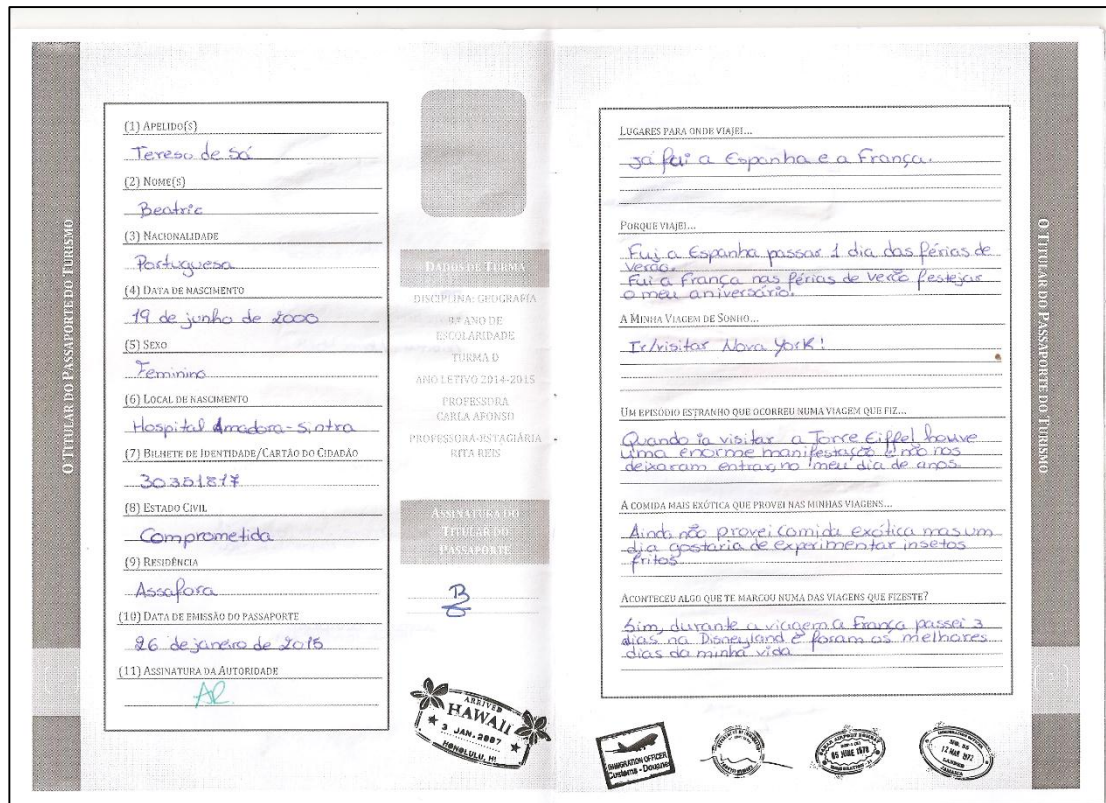 O TITULAR DO PASSAPORTE DO TURISMO
(1) APELIDO(S)
Tereso de Sá
(2) NOME(S)
Beatriz
(3) NACIONALIDADE
Portuguesa
(4) DATA DE NASCIMENTO
19 de junho de 2000
(5) SEXO
Feminino
(6) LOCAL DE NASCIMENTO
Hospital Amadora-Sintra
(7) BILHETE DE IDENTIDADE/CARTÃO DO CIDADÃO
30351817
(8) ESTADO CIVIL
Comprometida
(9) RESIDÊNCIA
Assafora
(10) DATA DE EMISSÃO DO PASSAPORTE
26 de janeiro de 2015
(11) ASSINATURA DA AUTORIDADE
DADOS DE TURMA
DISCIPLINA: GEOGRAFIA
ANO DE
ESCOLARIDADE
TURMA D
ANO LETIVO 2014-2015
PROFESSORA
CARLA AFONSO
PROFESSORA-ESTAGIÁRIA
RITA REIS
ASSINATURA DO
TITULAR DO
PASSAPORTE
B
ARRIVED
HAWAII
3 JAN. 2007
HONOLULU, HI
LUGARES PARA ONDE VIAJEI...
Já fui a Espanha e a França.
PORQUE VIAJEI...
Fui a Espanha passar 1 dia das férias de
verão.
Fui a França nas férias de verão festejar
o meu aniversário.
A MINHA VIAGEM DE SONHO...
Ir/visitar Nova York!
UM EPISÓDIO ESTRANHO QUE OCORREU NUMA VIAGEM QUE FIZ...
Quando ia visitar a Torre Eiffel houve
uma enorme manifestação e não nos
deixaram entrar, no meu dia de anos.
A COMIDA MAIS EXÓTICA QUE PROVEI NAS MINHAS VIAGENS...
Ainda não provei comida exótica mas um
dia gostaria de experimentar insetos
fritos
ACONTECEU ALGO QUE TE MARCOU NUMA DAS VIAGENS QUE FIZESTE?
Sim, durante a viagem a França passei 3
dias na Disneyland e foram os melhores
dias da minha vida
IMMIGRATION OFFICER
Customs - Douane
05 JUNE 1970
12 MAR 1972
LANDED
JAMAICA
O TITULAR DO PASSAPORTE DO TURISMO